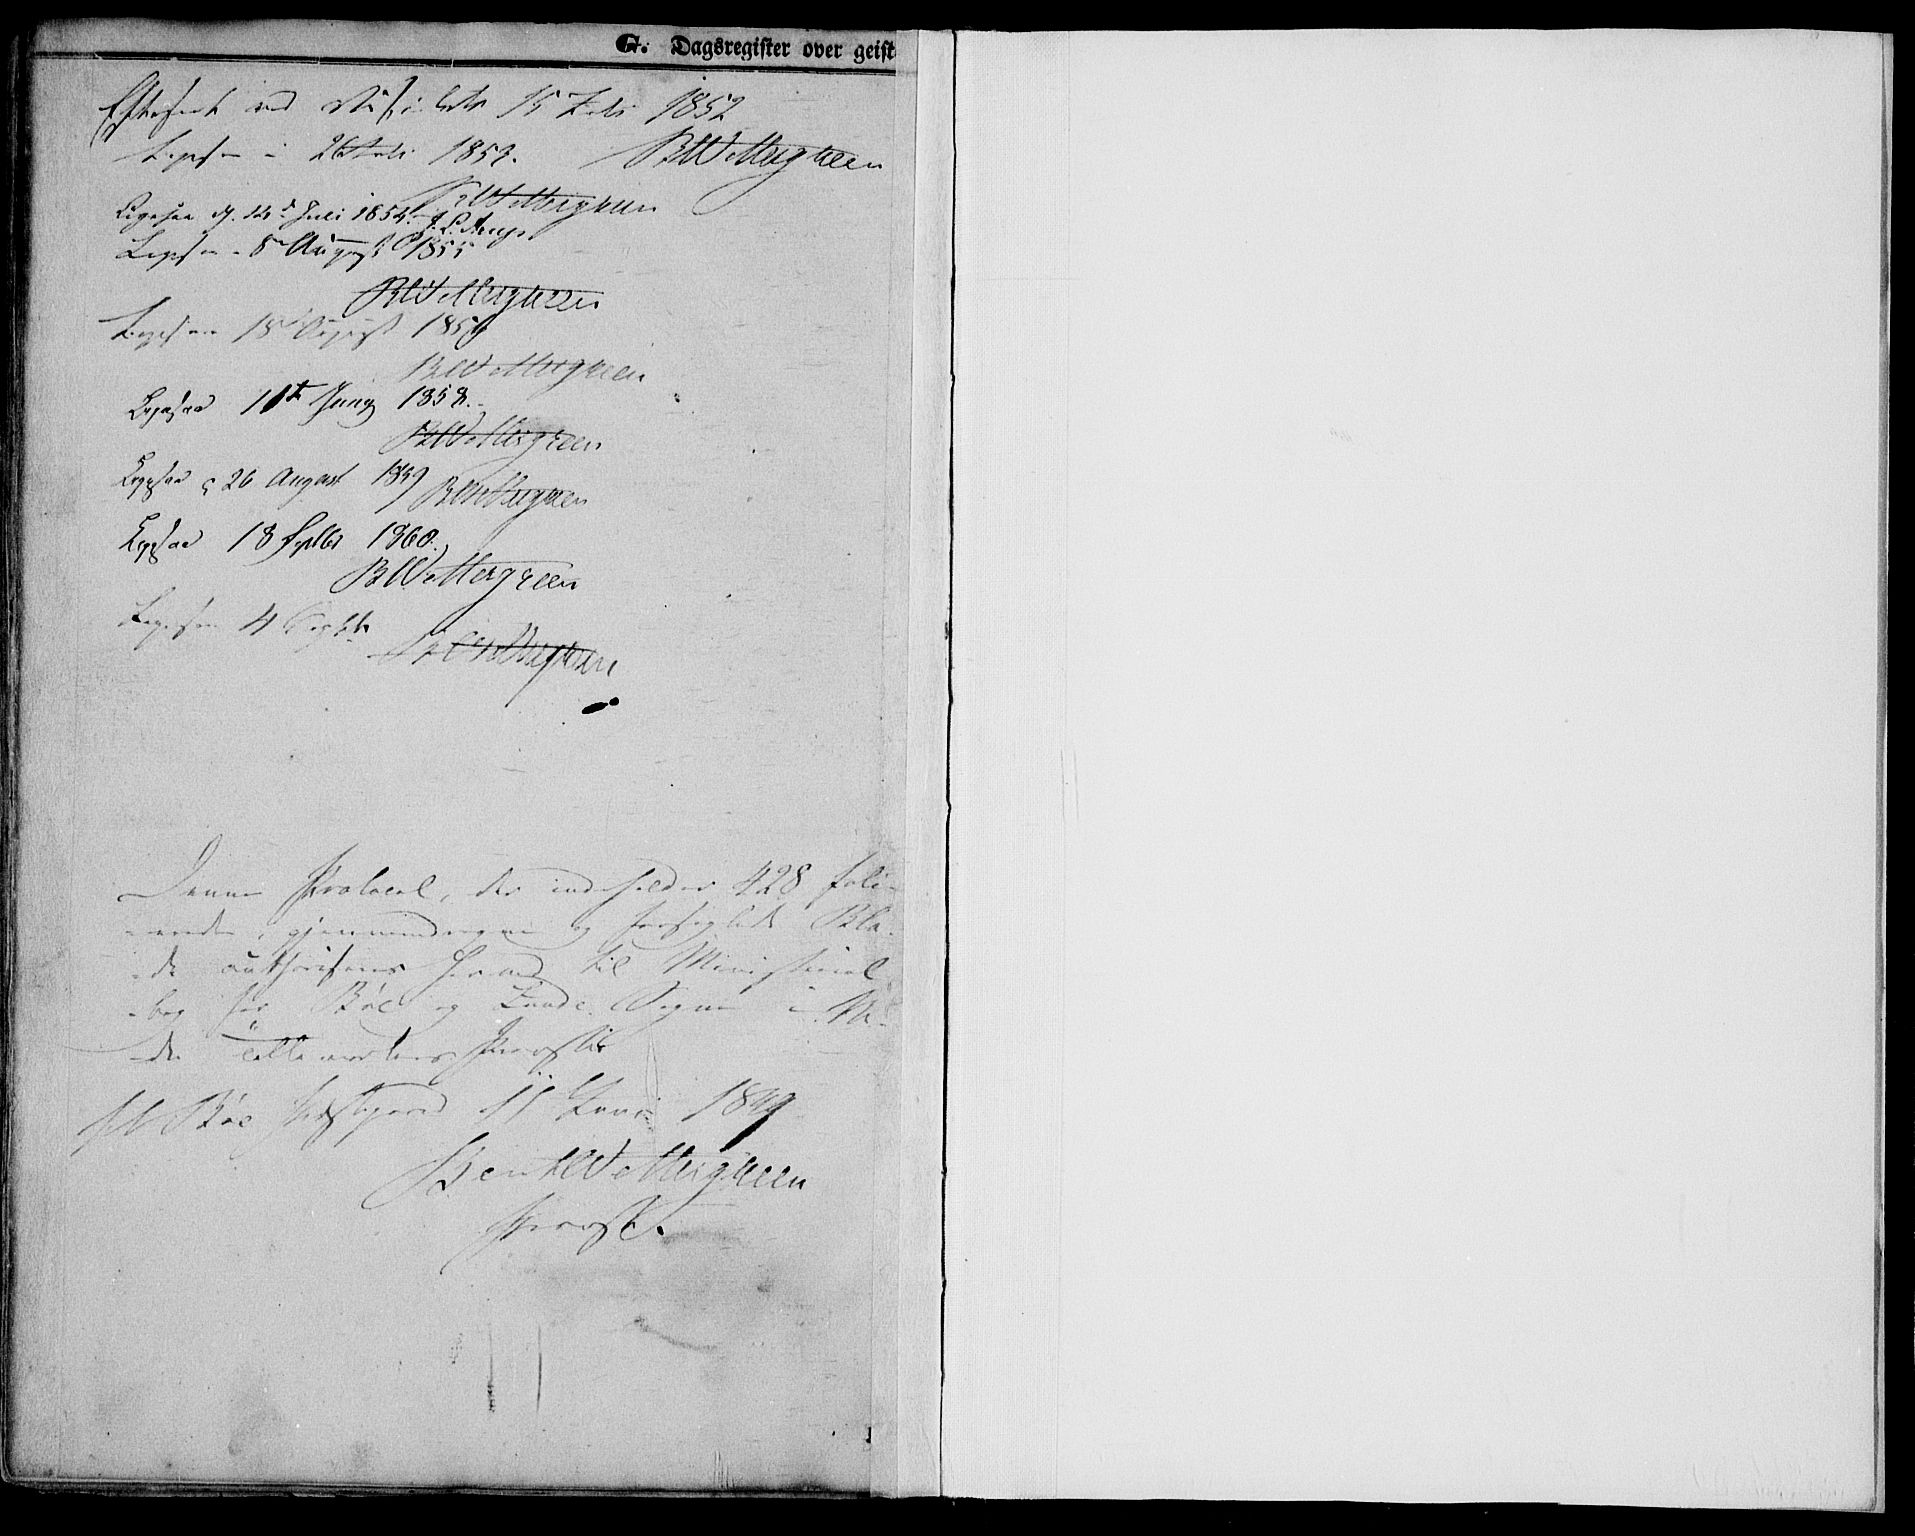 G. Dagsregister over geist
Efterseet ved Visitats 15 Juli 1852
Ligesaa 26 Juli 1853. BWettergreen
BWettergreen
Ligesaa d. 12 Juli 1854
Ligesaa 8 August 1855
BWettergreen
Ligesaa 18 August 1856
BWettergreen
Ligesaa 11te Juny 1858.
BWettergreen
Ligesaa 26 August 1859 BWettergreen
Ligesaa 18 Septbr 1860.
BWettergreen
Ligesaa 4 Septbr
BWettergreen
Denne Protocol, der indeholder 428 folie-
rende, gjennemdragne og forseglede Bla-
de authoriseres herved til Ministerial
bog for Böe og Lunde Sogne i Ne-
dre Tellemarkens Provstie
Böe Præstegaard 11 Juni 1849
Bent Wettergreen
Provst.